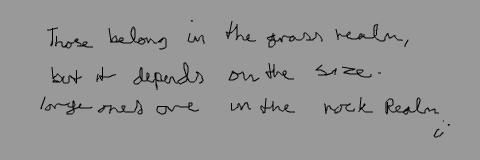 Those belong in the grass realm,
but it depends on the size.
large ones are in the rock Realm